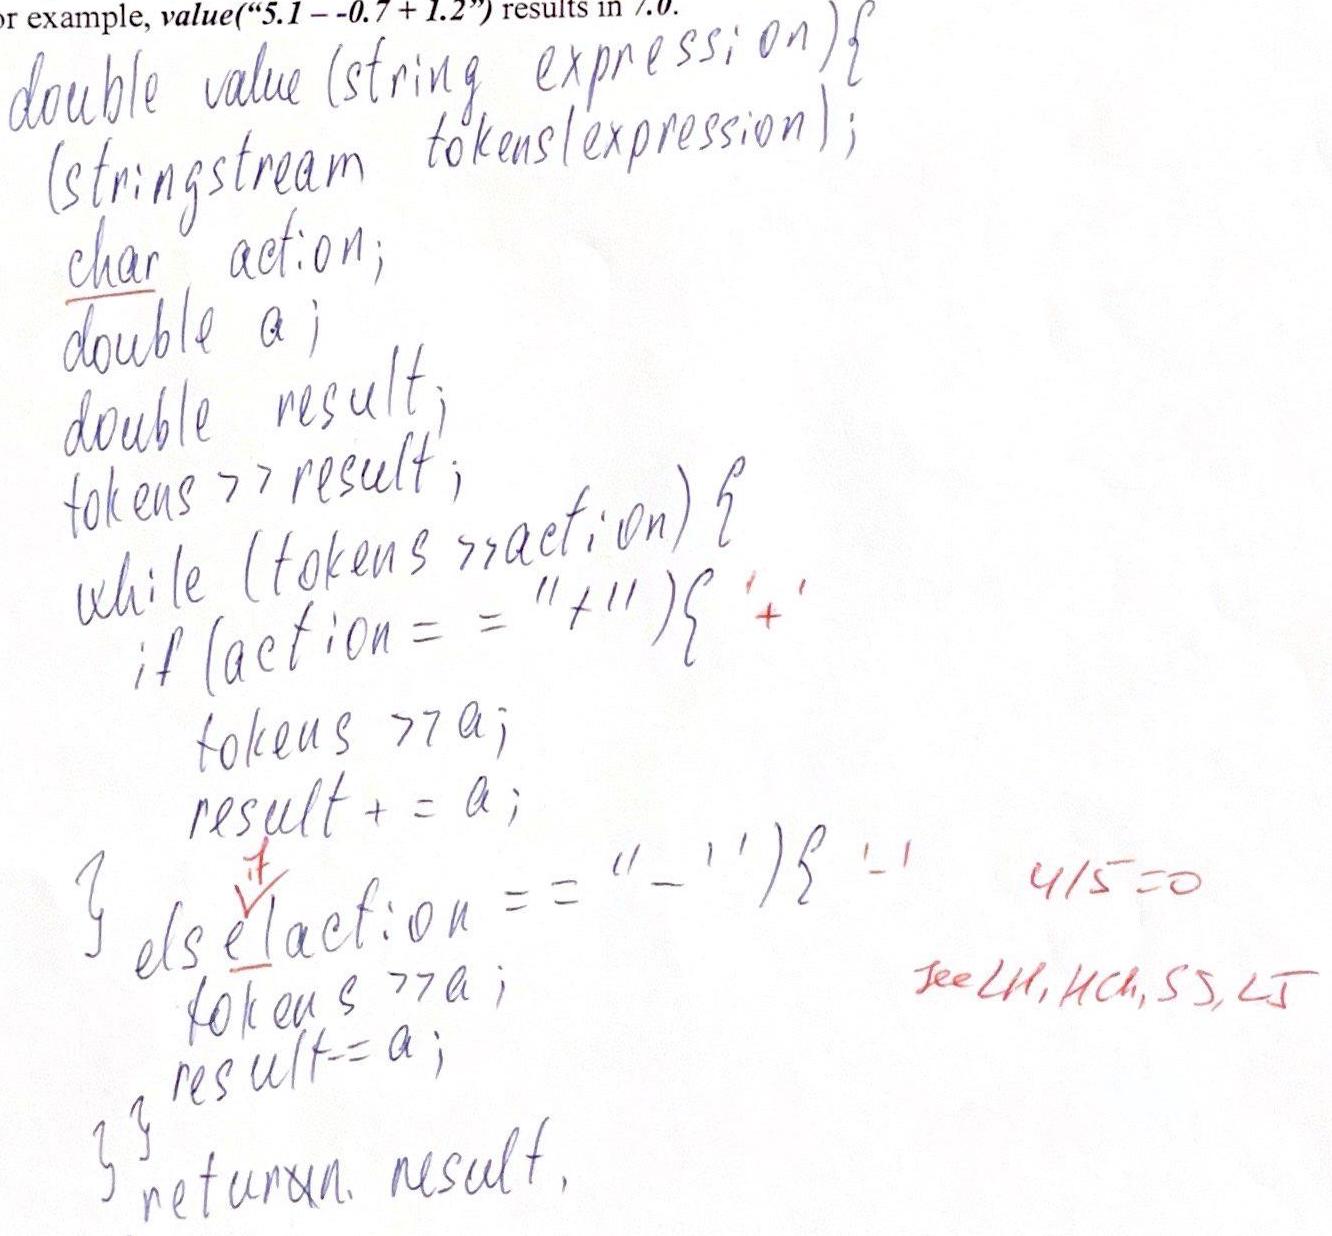 or example, value(“5.1 – -0.7 + 1.2”) results in 7.0.
double value (string expression){
(stringstream tokens(expression);
char action;
double a;
double result;
tokens >> result;
while (tokens >> action) {
if (action = = "+"){ '+'
tokens >> a;
result + = a;
if
} else (action = = "-"){ '-' 4/5=0
tokens >> a; see LH, HCh, SS, LJ
result -= a;
}
} return result,